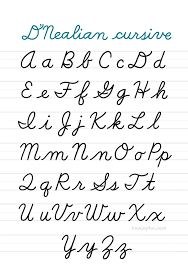 D'Nealian cursive
Aa Bb Cc Dd
Ee Ff Gg Hh
Ii Jj Kk Ll
Mm Nn Oo Pp
Qq Rr Ss Tt
Uu Vv Ww Xx
Yy Zz